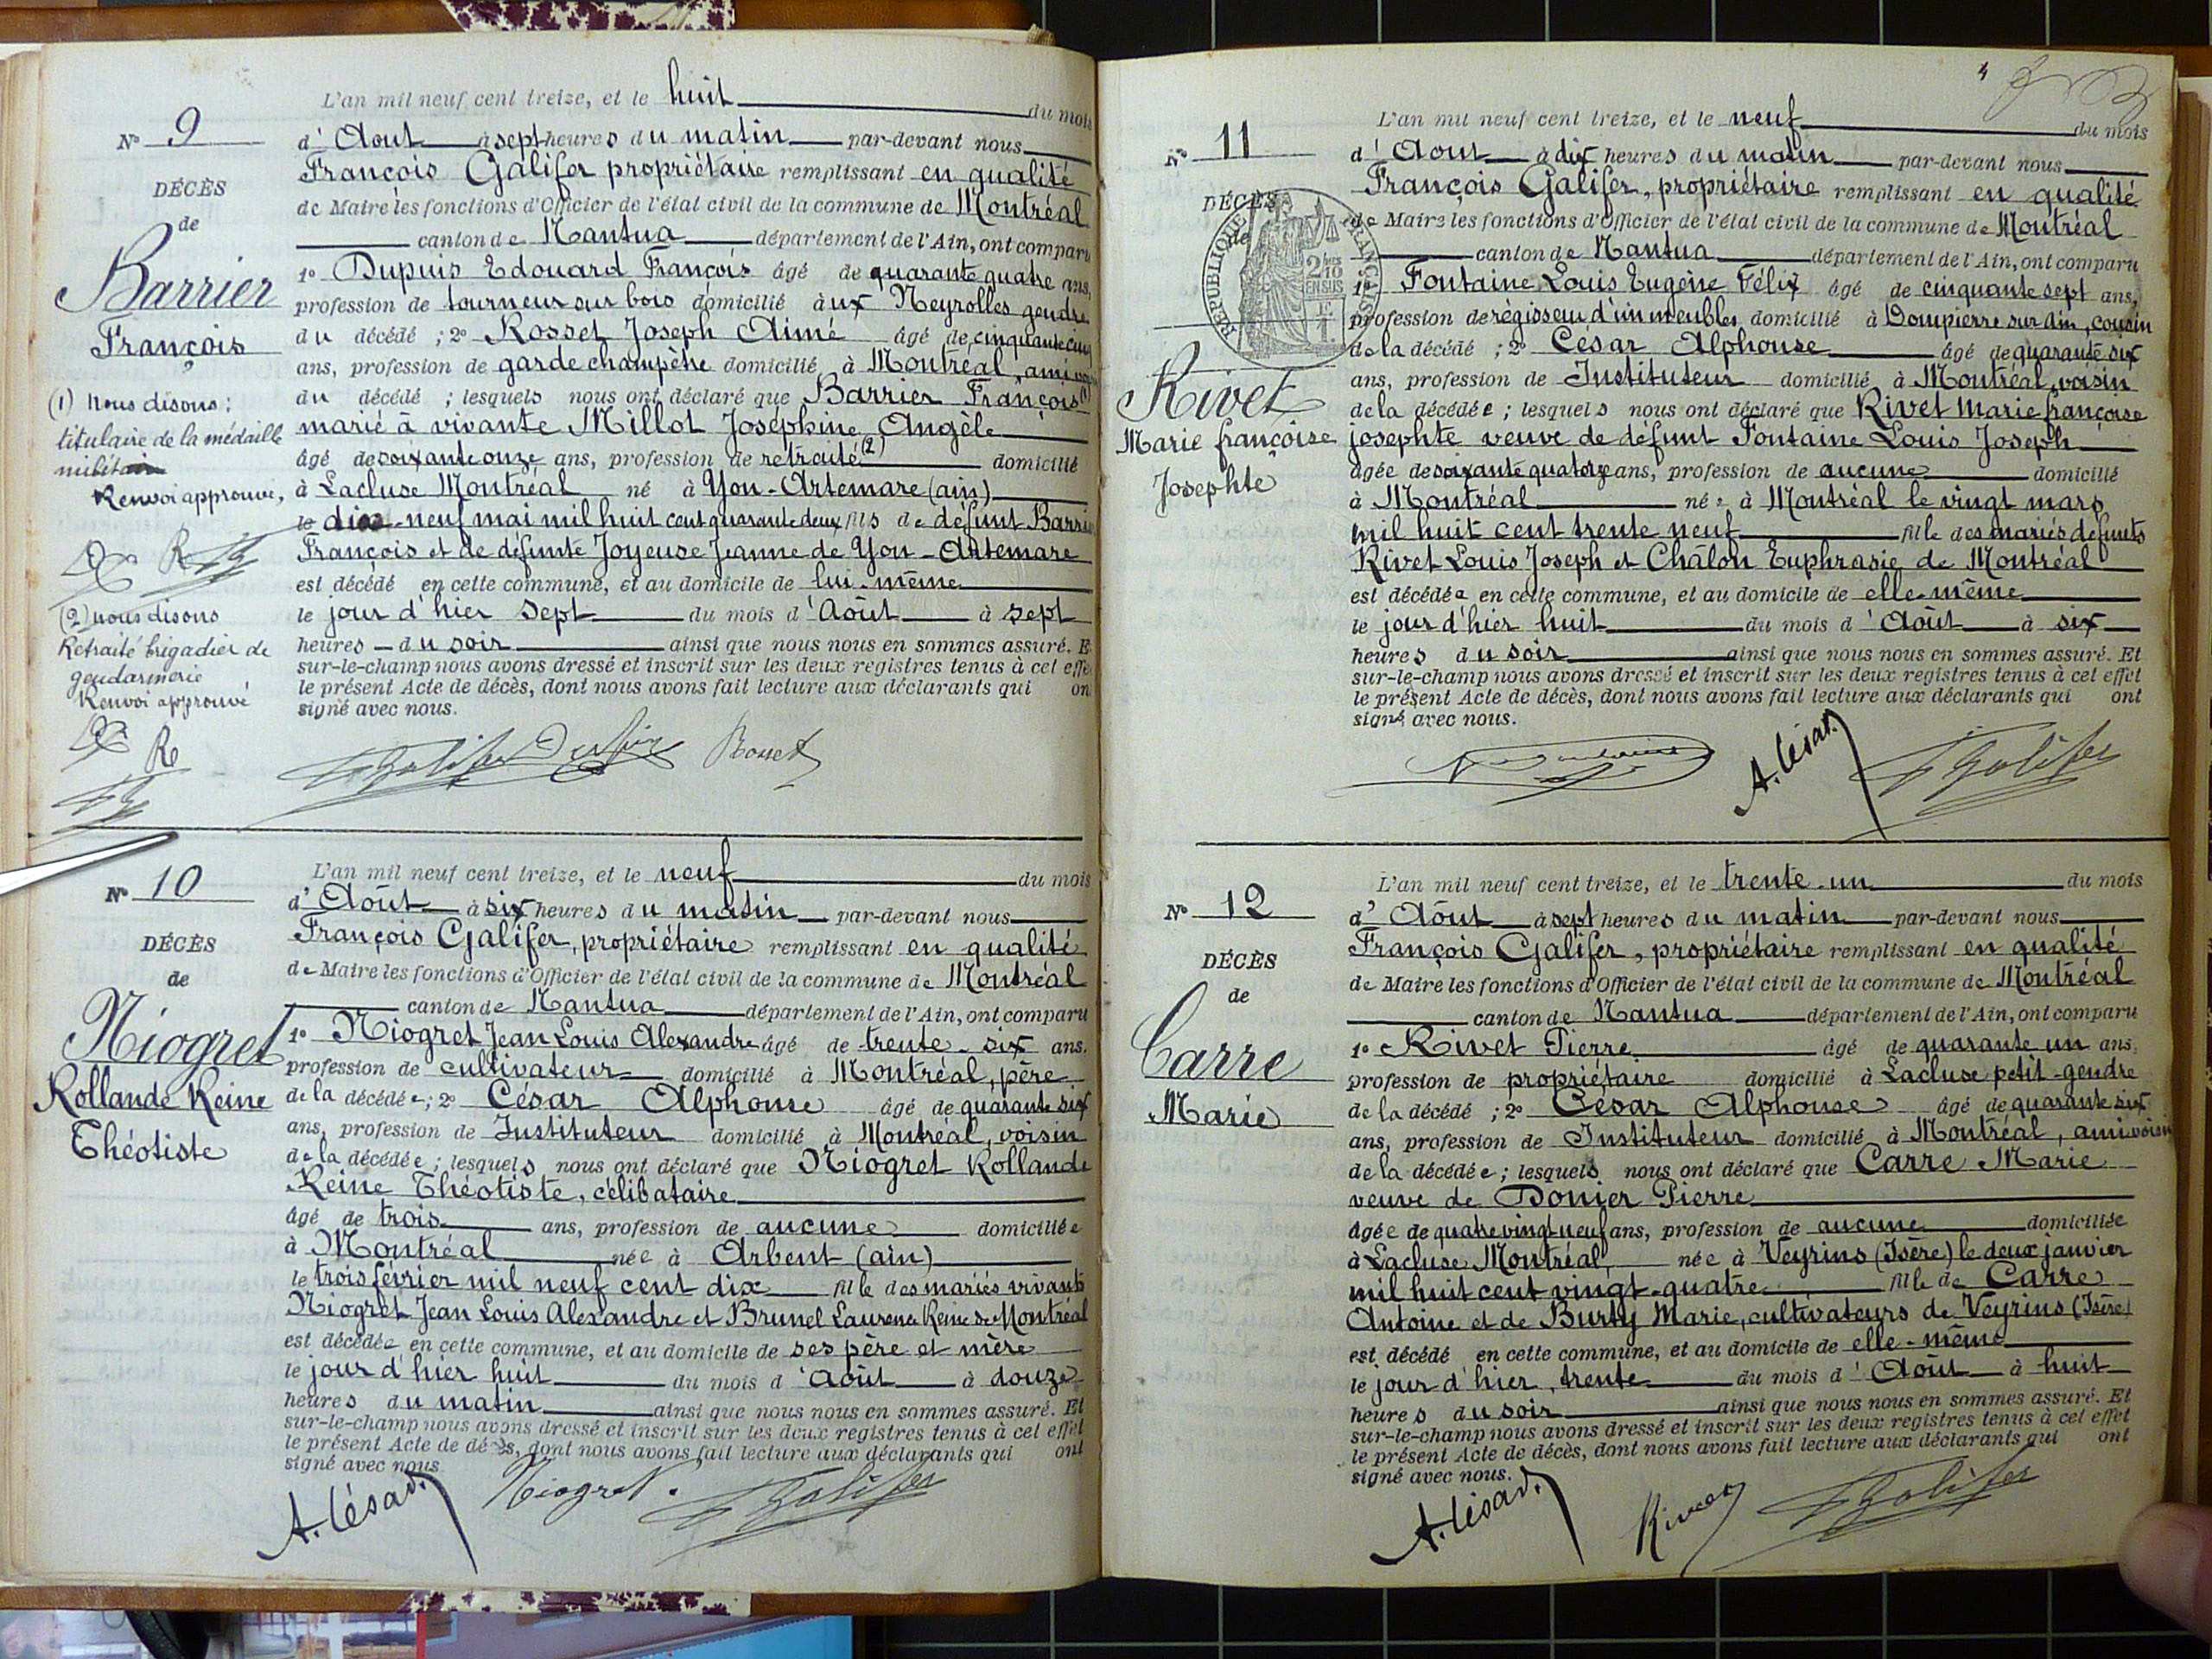 L'an mil neuf cent treize, et le huit du mois
N° 9
d'Aout à sept heures du matin par-devant nous
François Galifer propriétaire remplissant en qualité
DÉCÈS
de Maire les fonctions d'Officier de l'état civil de la commune de Montréal
de
canton de Nantua département de l'Ain, ont comparu
Barrier
1° Dupuis Edouard François âgé de quarante quatre ans,
profession de tourneur sur bois domicilié aux Neyrolles gendre
François
du décédé ; 2° Rosset Joseph Aimé âgé de cinquante cinq
ans, profession de garde champêtre domicilié à Montréal, ami
(1) nous disons :
du décédé ; lesquels nous ont déclaré que Barrier François (1)
titulaire de la médaille
marié à vivante Millot Joséphine Angèle
militaire
âgé de soixante onze ans, profession de retraité (2) domicilié
Renvoi approuvé,
à Lacluse Montréal né à Yon-Artemare (ain)
le dix-neuf mai mil huit cent quarante deux fils de défunt Barrier
François et de défunte Joyeuse Jeanne de Yon-Artemare
est décédé en cette commune, et au domicile de lui-même
(2) nous disons
le jour d'hier sept du mois d'Août à sept
Retraité brigadier de
heures du soir ainsi que nous nous en sommes assuré. Et
gendarmerie
sur-le-champ nous avons dressé et inscrit sur les deux registres tenus à cet effet
Renvoi approuvé
le présent Acte de décès, dont nous avons fait lecture aux déclarants qui ont
signé avec nous.
Galifer Dupuis Rosset
L'an mil neuf cent treize, et le neuf du mois
N° 10
d'Août à six heures du matin par-devant nous
François Galifer, propriétaire remplissant en qualité
DÉCÈS
de Maire les fonctions d'Officier de l'état civil de la commune de Montréal
de
canton de Nantua département de l'Ain, ont comparu
Niogret
1° Niogret Jean Louis Alexandre âgé de trente-six ans.
profession de cultivateur domicilié à Montréal, père
Rollande Reine
de la décédée ; 2° César Alphonse âgé de quarante six
Théotiste
ans, profession de Instituteur domicilié à Montréal, voisin
de la décédée ; lesquels nous ont déclaré que Niogret Rollande
Reine Théotiste, célibataire
âgé de trois ans, profession de aucune domiciliée
à Montréal née à Arbent (ain)
le trois février mil neuf cent dix fille des mariés vivants
Niogret Jean Louis Alexandre et Brunel Laurence Reine de Montréal
est décédée en cette commune, et au domicile de ses père et mère
le jour d'hier huit du mois d'Août à douze
heures du matin ainsi que nous nous en sommes assuré. Et
sur-le-champ nous avons dressé et inscrit sur les deux registres tenus à cet effet
le présent Acte de décès, dont nous avons fait lecture aux déclarants qui ont
signé avec nous
A. César. Niogret. Galifer
4
L'an mil neuf cent treize, et le neuf du mois
N° 11
d'Aout à dix heures du matin par-devant nous
François Galifer, propriétaire remplissant en qualité
DÉCÈS
de Maire les fonctions d'Officier de l'état civil de la commune de Montréal
de
canton de Nantua département de l'Ain, ont comparu
RÉPUBLIQUE FRANÇAISE
2/10 EN SUS
1° Fontaine Louis Eugène Félix âgé de cinquante sept ans,
profession de régisseur d'immeubles domicilié à Dompierre sur ain, cousin
de la décédé ; 2° César Alphonse âgé de quarante six
Rivet
ans, profession de Instituteur domicilié à Montréal, voisin
de la décédée ; lesquels nous ont déclaré que Rivet Marie françoise
Marie françoise
josephte veuve de défunt Fontaine Louis Joseph
Josephte
âgée de soixante quatorze ans, profession de aucune domicilié
à Montréal née à Montréal le vingt mars
mil huit cent trente neuf fille des mariés défunts
Rivet Louis Joseph et Châlon Euphrasie de Montréal
est décédée en cette commune, et au domicile de elle-même
le jour d'hier huit du mois d'Août à six
heures du soir ainsi que nous nous en sommes assuré. Et
sur-le-champ nous avons dressé et inscrit sur les deux registres tenus à cet effet
le présent Acte de décès, dont nous avons fait lecture aux déclarants qui ont
signé avec nous.
A. César. Galifer
L'an mil neuf cent treize, et le trente-un du mois
N° 12
d'Août à sept heures du matin par-devant nous
François Galifer, propriétaire remplissant en qualité
DÉCÈS
de Maire les fonctions d'Officier de l'état civil de la commune de Montréal
de
canton de Nantua département de l'Ain, ont comparu
Carre
1° Rivet Pierre âgé de quarante un ans,
profession de propriétaire domicilié à Lacluse petit-gendre
Marie
de la décédé ; 2° César Alphonse âgé de quarante six
ans, profession de Instituteur domicilié à Montréal, ami voisin
de la décédée ; lesquels nous ont déclaré que Carre Marie
veuve de Donier Pierre
âgée de quatre vingt neuf ans, profession de aucune domiciliée
à Lacluse Montréal, née à Veyrins (Isère) le deux janvier
mil huit cent vingt-quatre fille de Carre
Antoine et de Burty Marie, cultivateurs de Veyrins (Isère)
est décédé en cette commune, et au domicile de elle-même
le jour d'hier, trente du mois d'Août à huit
heures du soir ainsi que nous nous en sommes assuré. Et
sur-le-champ nous avons dressé et inscrit sur les deux registres tenus à cet effet
le présent Acte de décès, dont nous avons fait lecture aux déclarants qui ont
signé avec nous.
A. César. Rivet Galifer